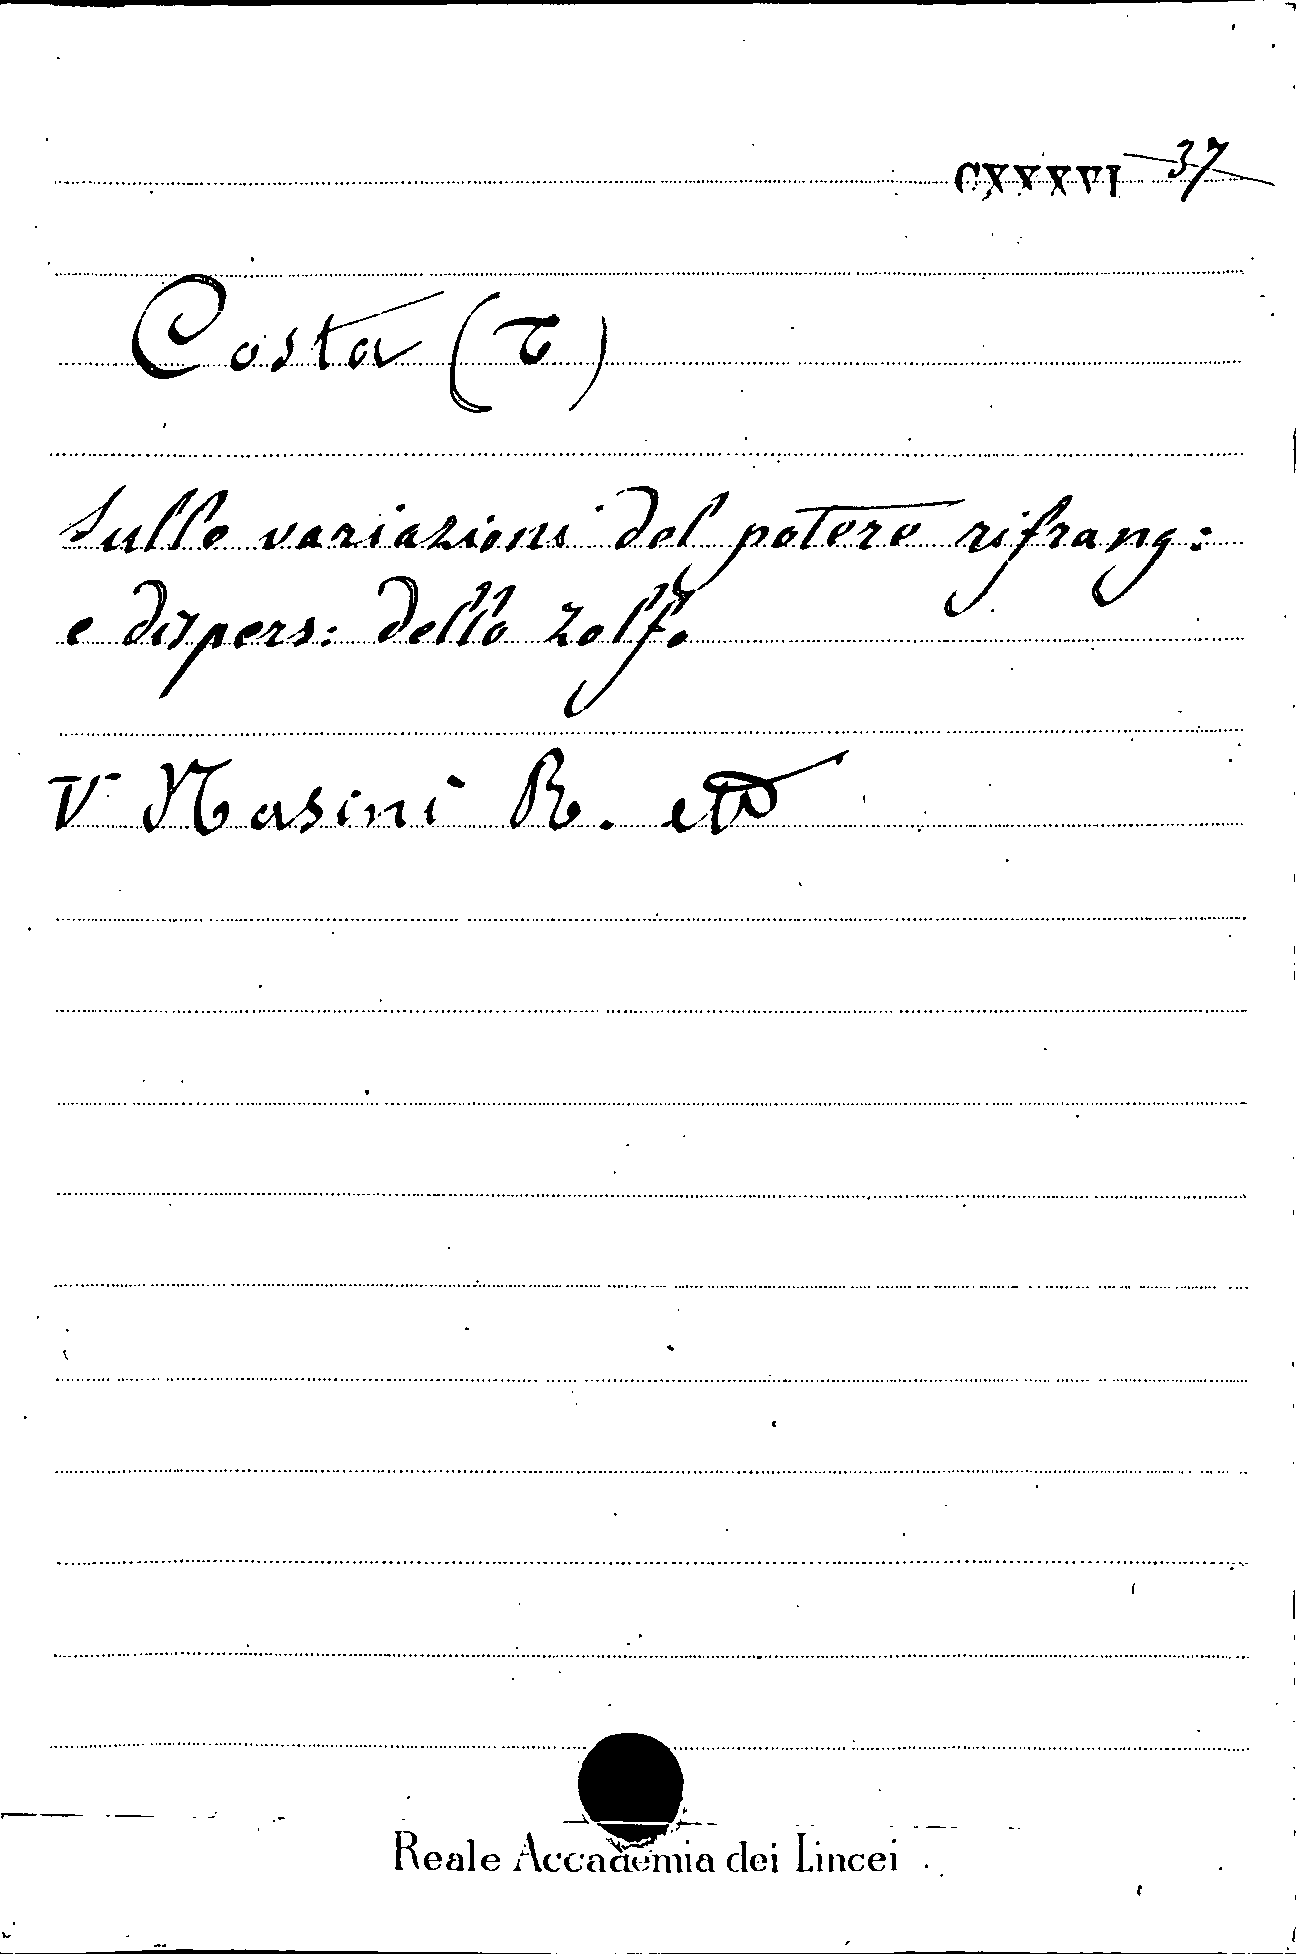 CXXXVI 37
Costa (T)
Sulle variazioni del potere rifrang:
e dispers: dello zolfo
V. Nasini R. ett
Reale Accademia dei Lincei